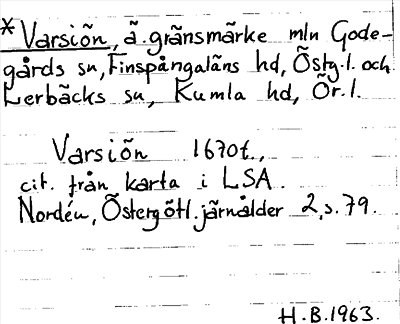 *Varsiõn, ä. gränsmärke mln Gode-
gårds sn, Finspångaläns hd, Östg. l. och
Lerbäcks sn, Kumla hd, Ör. l.
Varsiõn 1670t.,
cit. från karta i LSA.
Nordén, Östergötl. järnålder 2, s. 79.
H.B. 1963.